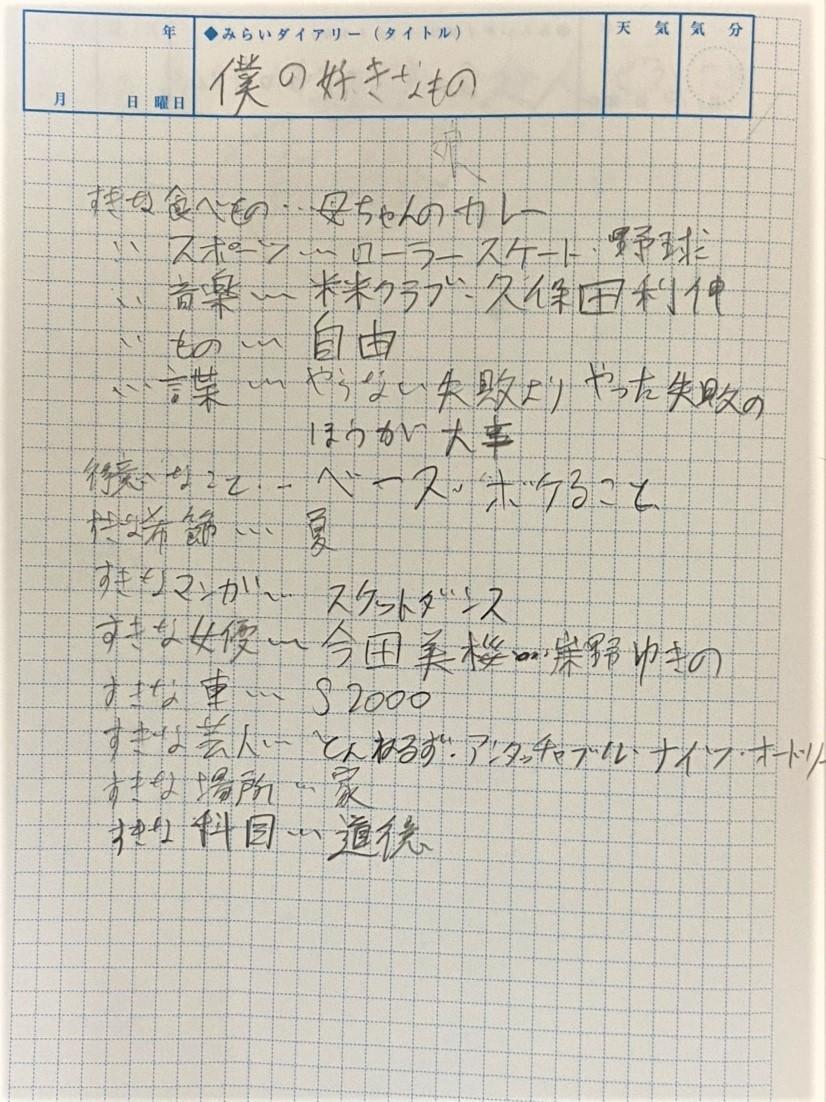 年
月 日 曜日
◆みらいダイアリー(タイトル)
天気
気分
僕の好きなもの
すきな食べもの…母ちゃんのカレー
〃 スポーツ…ローラースケート・野球
〃 音楽…米米クラブ・久保田利伸
〃 もの…自由
〃 言葉…やらない失敗より やった失敗の
ほうが大事
得意なこと…ベース・ボケること
すきな季節…夏
すきなマンガ…スケットダンス
すきな女優…今田美桜…岸野ゆきの
すきな車…S2000
すきな芸人…とんねるず・アンタッチャブル・ナイツ・オードリー
すきな場所…家
すきな科目…道徳